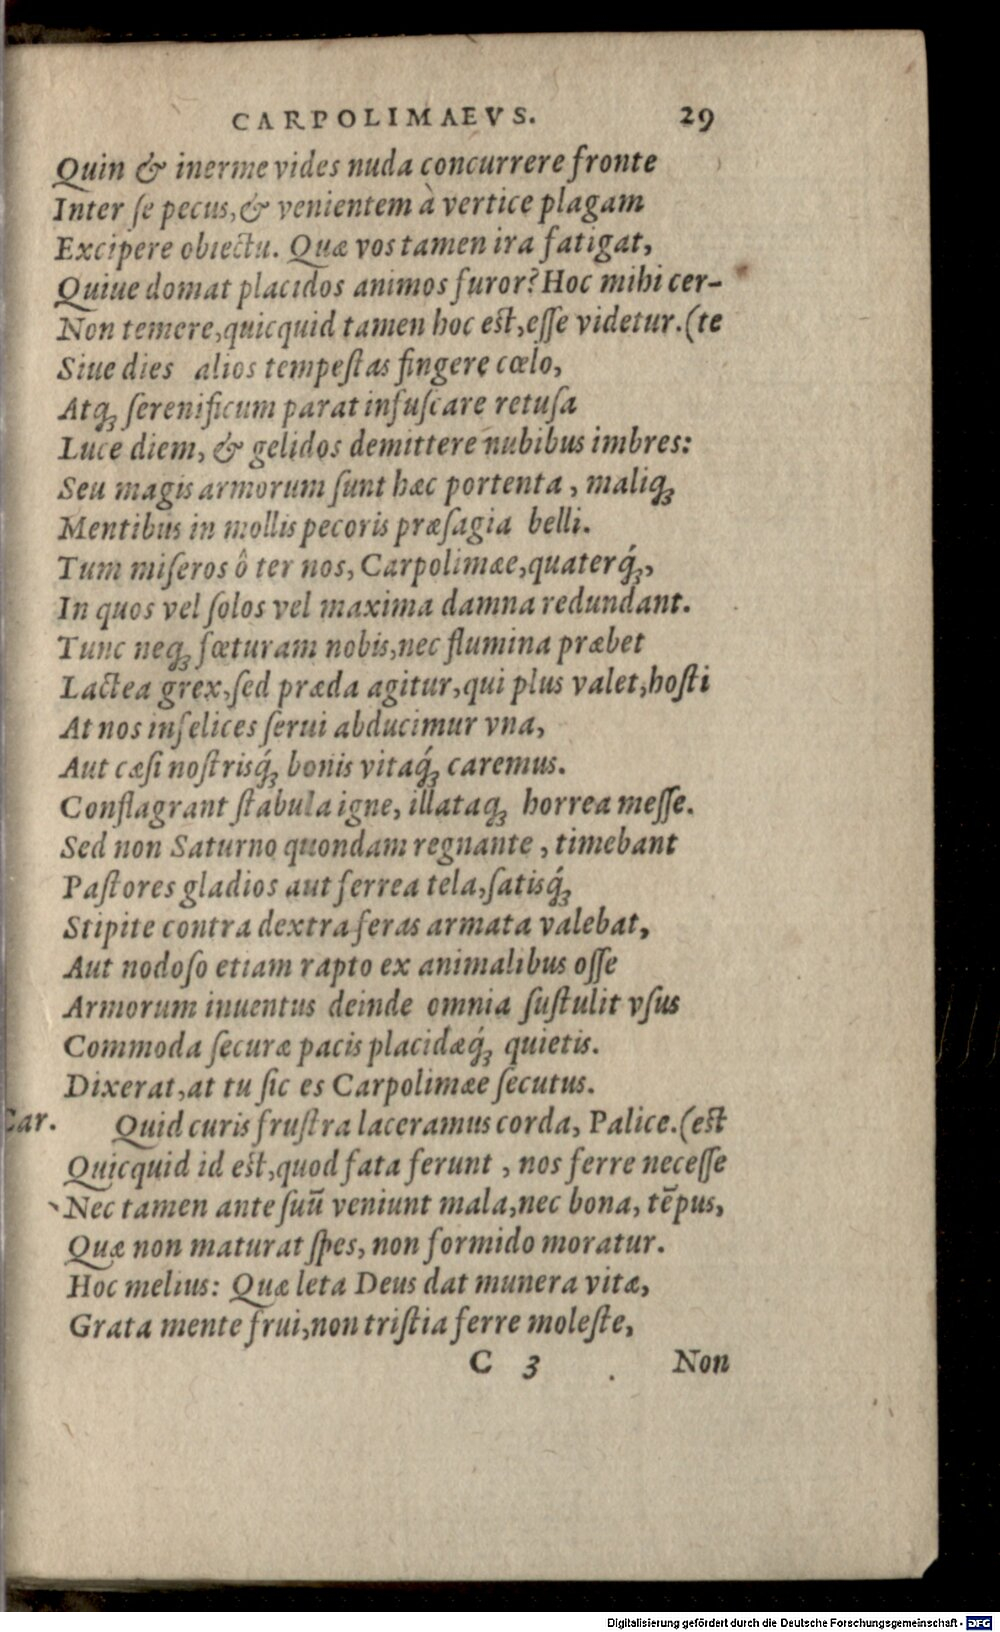 CARPOLIMAEVS. 29
Quin & inerme vides nuda concurrere fronte
Inter ſe pecus, & venientem à vertice plagam
Excipere obiectu. Quæ vos tamen ira fatigat,
Quiue domat placidos animos furor? Hoc mihi cer-
Non temere, quicquid tamen hoc est, eſſe videtur. (te
Siue dies alios tempeſtas fingere cœlo,
Atq₃ ſerenificum parat infuſcare retuſa
Luce diem, & gelidos demittere nubibus imbres:
Seu magis armorum ſunt hæc portenta, maliq₃
Mentibus in mollis pecoris præſagia belli.
Tum miſeros ô ter nos, Carpolimæe, quaterq́₃,
In quos vel ſolos vel maxima damna redundant.
Tunc neq₃ fœturam nobis, nec flumina præbet
Lactea grex, ſed præda agitur, qui plus valet, hoſti
At nos infelices ſerui abducimur vna,
Aut cæſi noſtrisq́₃ bonis vitaq́₃ caremus.
Conflagrant ſtabula igne, illataq₃ horrea meſſe.
Sed non Saturno quondam regnante, timebant
Paſtores gladios aut ferrea tela, ſatisq́₃
Stipite contra dextra feras armata valebat,
Aut nodoſo etiam rapto ex animalibus oſſe
Armorum inuentus deinde omnia ſuſtulit vſus
Commoda ſecuræ pacis placidæq́₃ quietis.
Dixerat, at tu ſic es Carpolimæe ſecutus.
Car. Quid curis fruſtra laceramus corda, Palice. (est
Quicquid id est, quod fata ferunt, nos ferre neceſſe
Nec tamen ante ſuū veniunt mala, nec bona, tēpus,
Quæ non maturat ſpes, non formido moratur.
Hoc melius: Quæ leta Deus dat munera vitæ,
Grata mente frui, non triſtia ferre moleſte,
C 3 Non
Digitalisierung gefördert durch die Deutsche Forschungsgemeinschaft - DFG